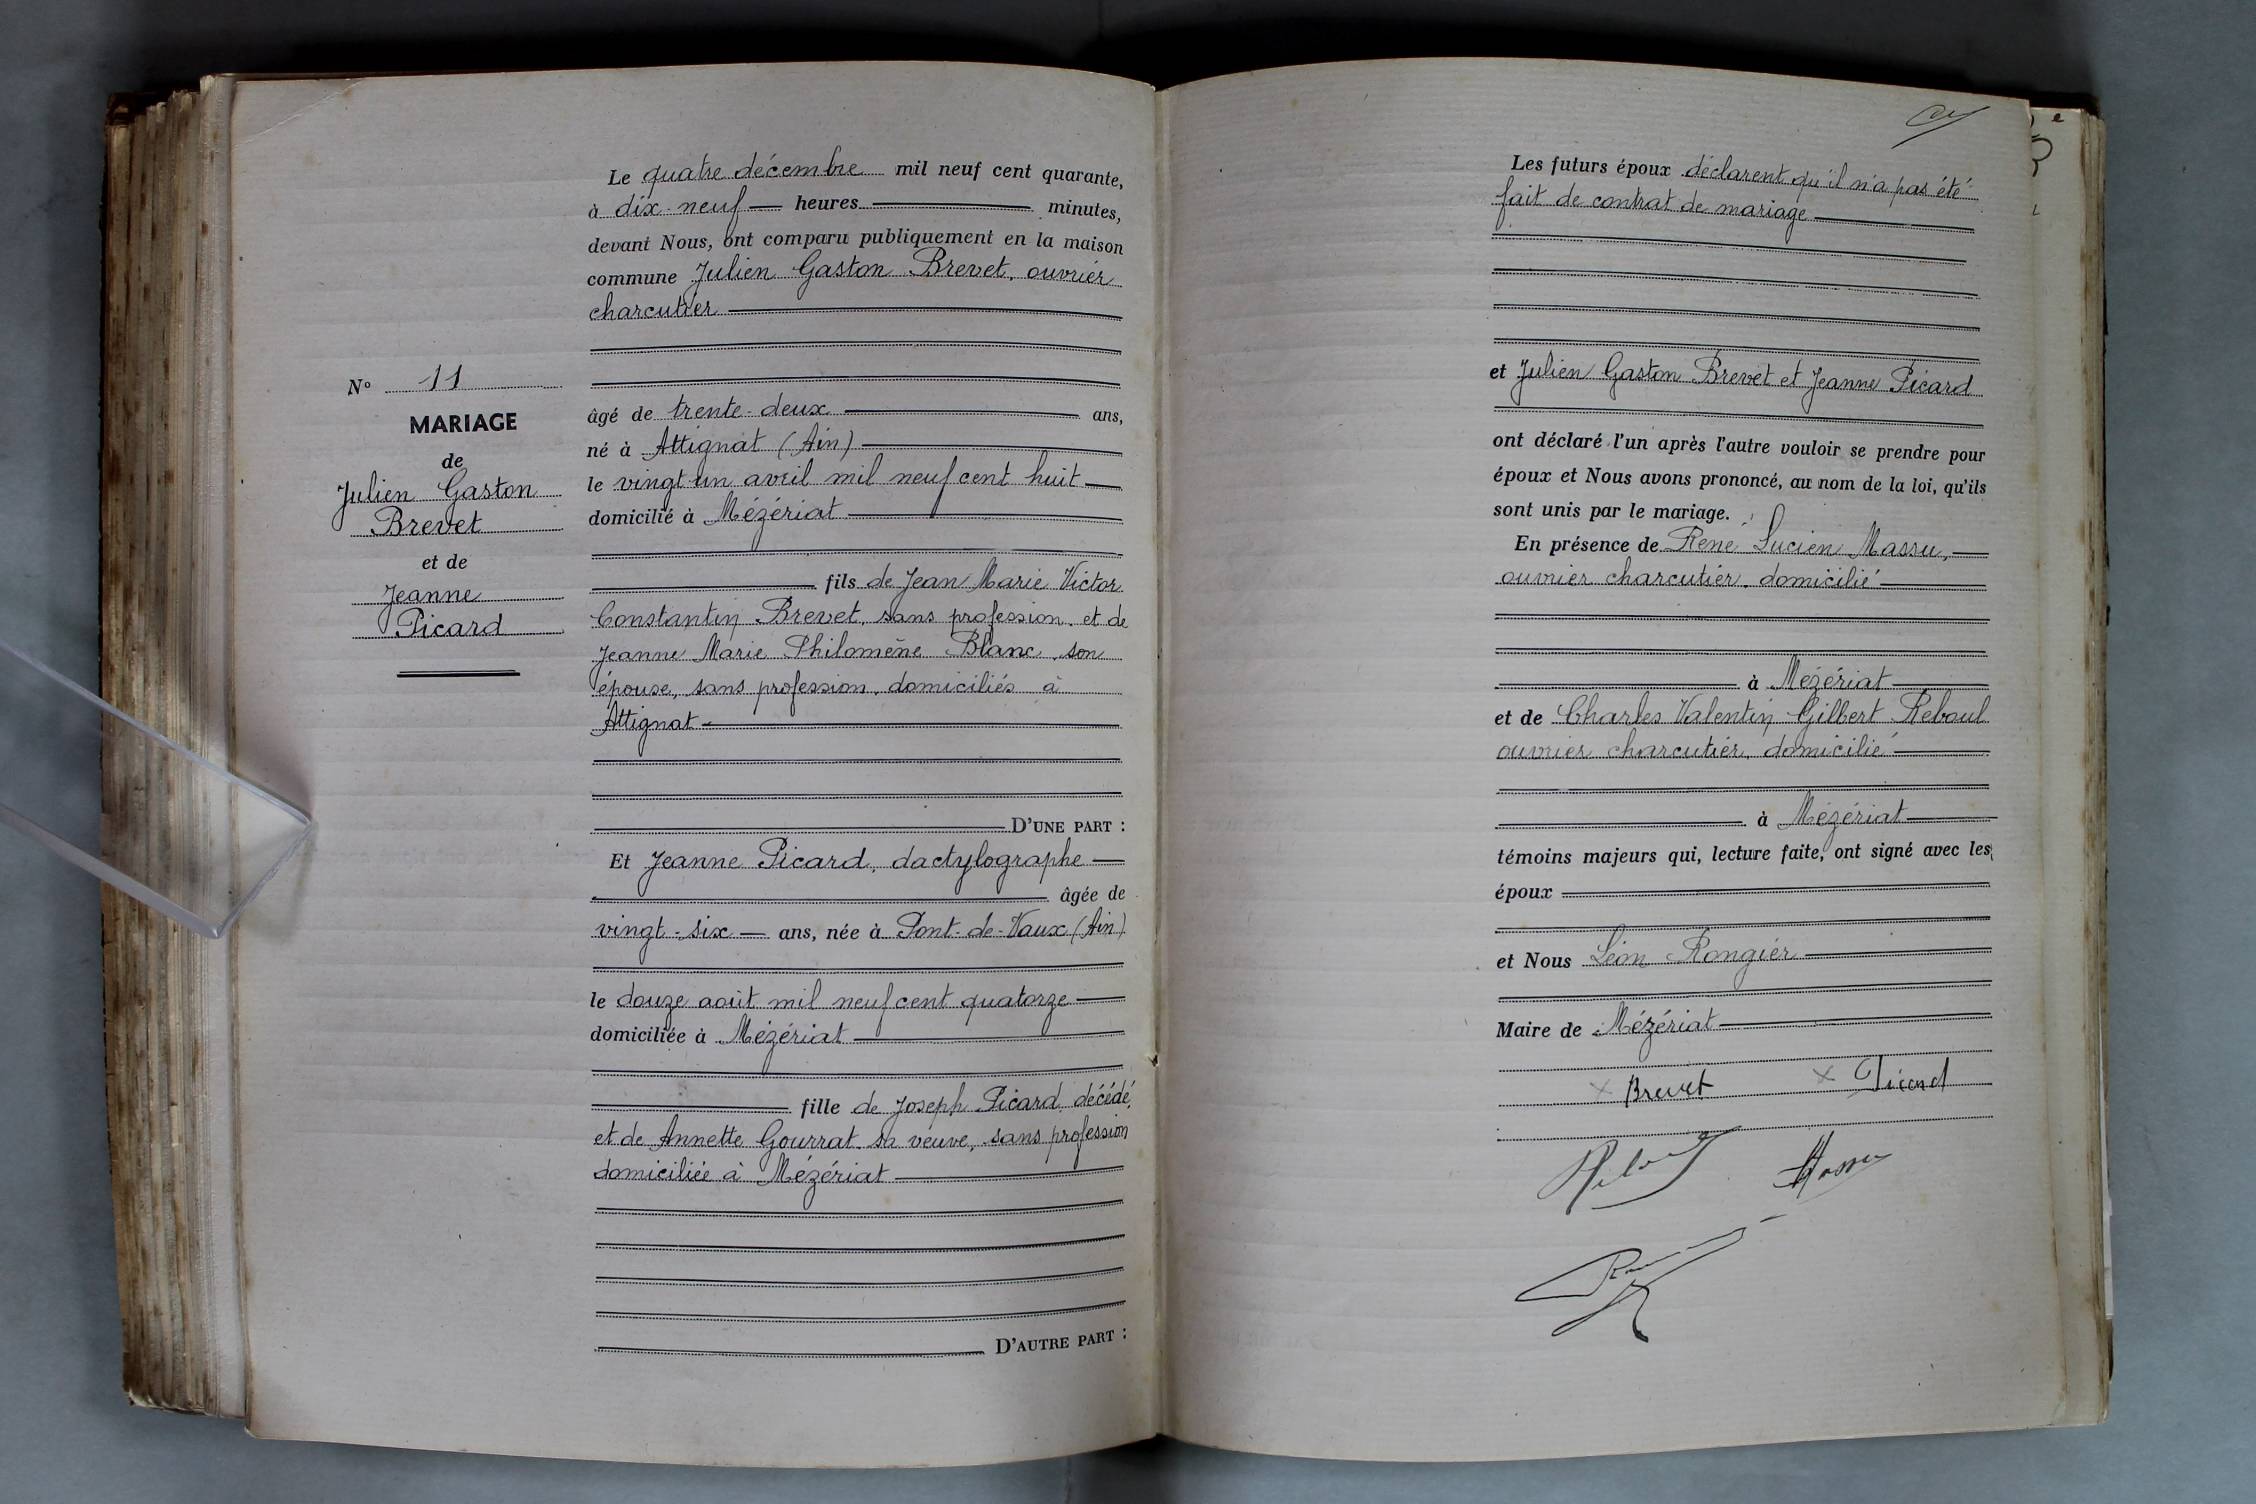 N° 11
MARIAGE
de
Julien Gaston
Brevet
et de
Jeanne
Picard
Le quatre décembre mil neuf cent quarante,
à dix-neuf heures minutes,
devant Nous, ont comparu publiquement en la maison
commune Julien Gaston Brevet, ouvrier
charcutier
âgé de trente-deux ans,
né à Attignat (Ain)
le vingt-un avril mil neuf cent huit
domicilié à Mézériat
fils de Jean Marie Victor
Constantin Brevet, sans profession et de
Jeanne Marie Philomène Blanc, son
épouse, sans profession, domiciliés à
Attignat
D'UNE PART :
Et Jeanne Picard, dactylographe
âgée de
vingt-six ans, née à Pont-de-Vaux (Ain)
le douze août mil neuf cent quatorze
domiciliée à Mézériat
fille de Joseph Picard, décédé,
et de Annette Gourrat sa veuve, sans profession
domiciliée à Mézériat
D'AUTRE PART :
Les futurs époux déclarent qu'il n'a pas été
fait de contrat de mariage
et Julien Gaston Brevet et Jeanne Picard
ont déclaré l'un après l'autre vouloir se prendre pour
époux et Nous avons prononcé, au nom de la loi, qu'ils
sont unis par le mariage.
En présence de René Lucien Massu,
ouvrier charcutier, domicilié
à Mézériat
et de Charles Valentin Gilbert Reboul
ouvrier charcutier, domicilié
à Mézériat
témoins majeurs qui, lecture faite, ont signé avec les
époux
et Nous Léon Rongier
Maire de Mézériat
x Brevet x Picard
Reboul Massu